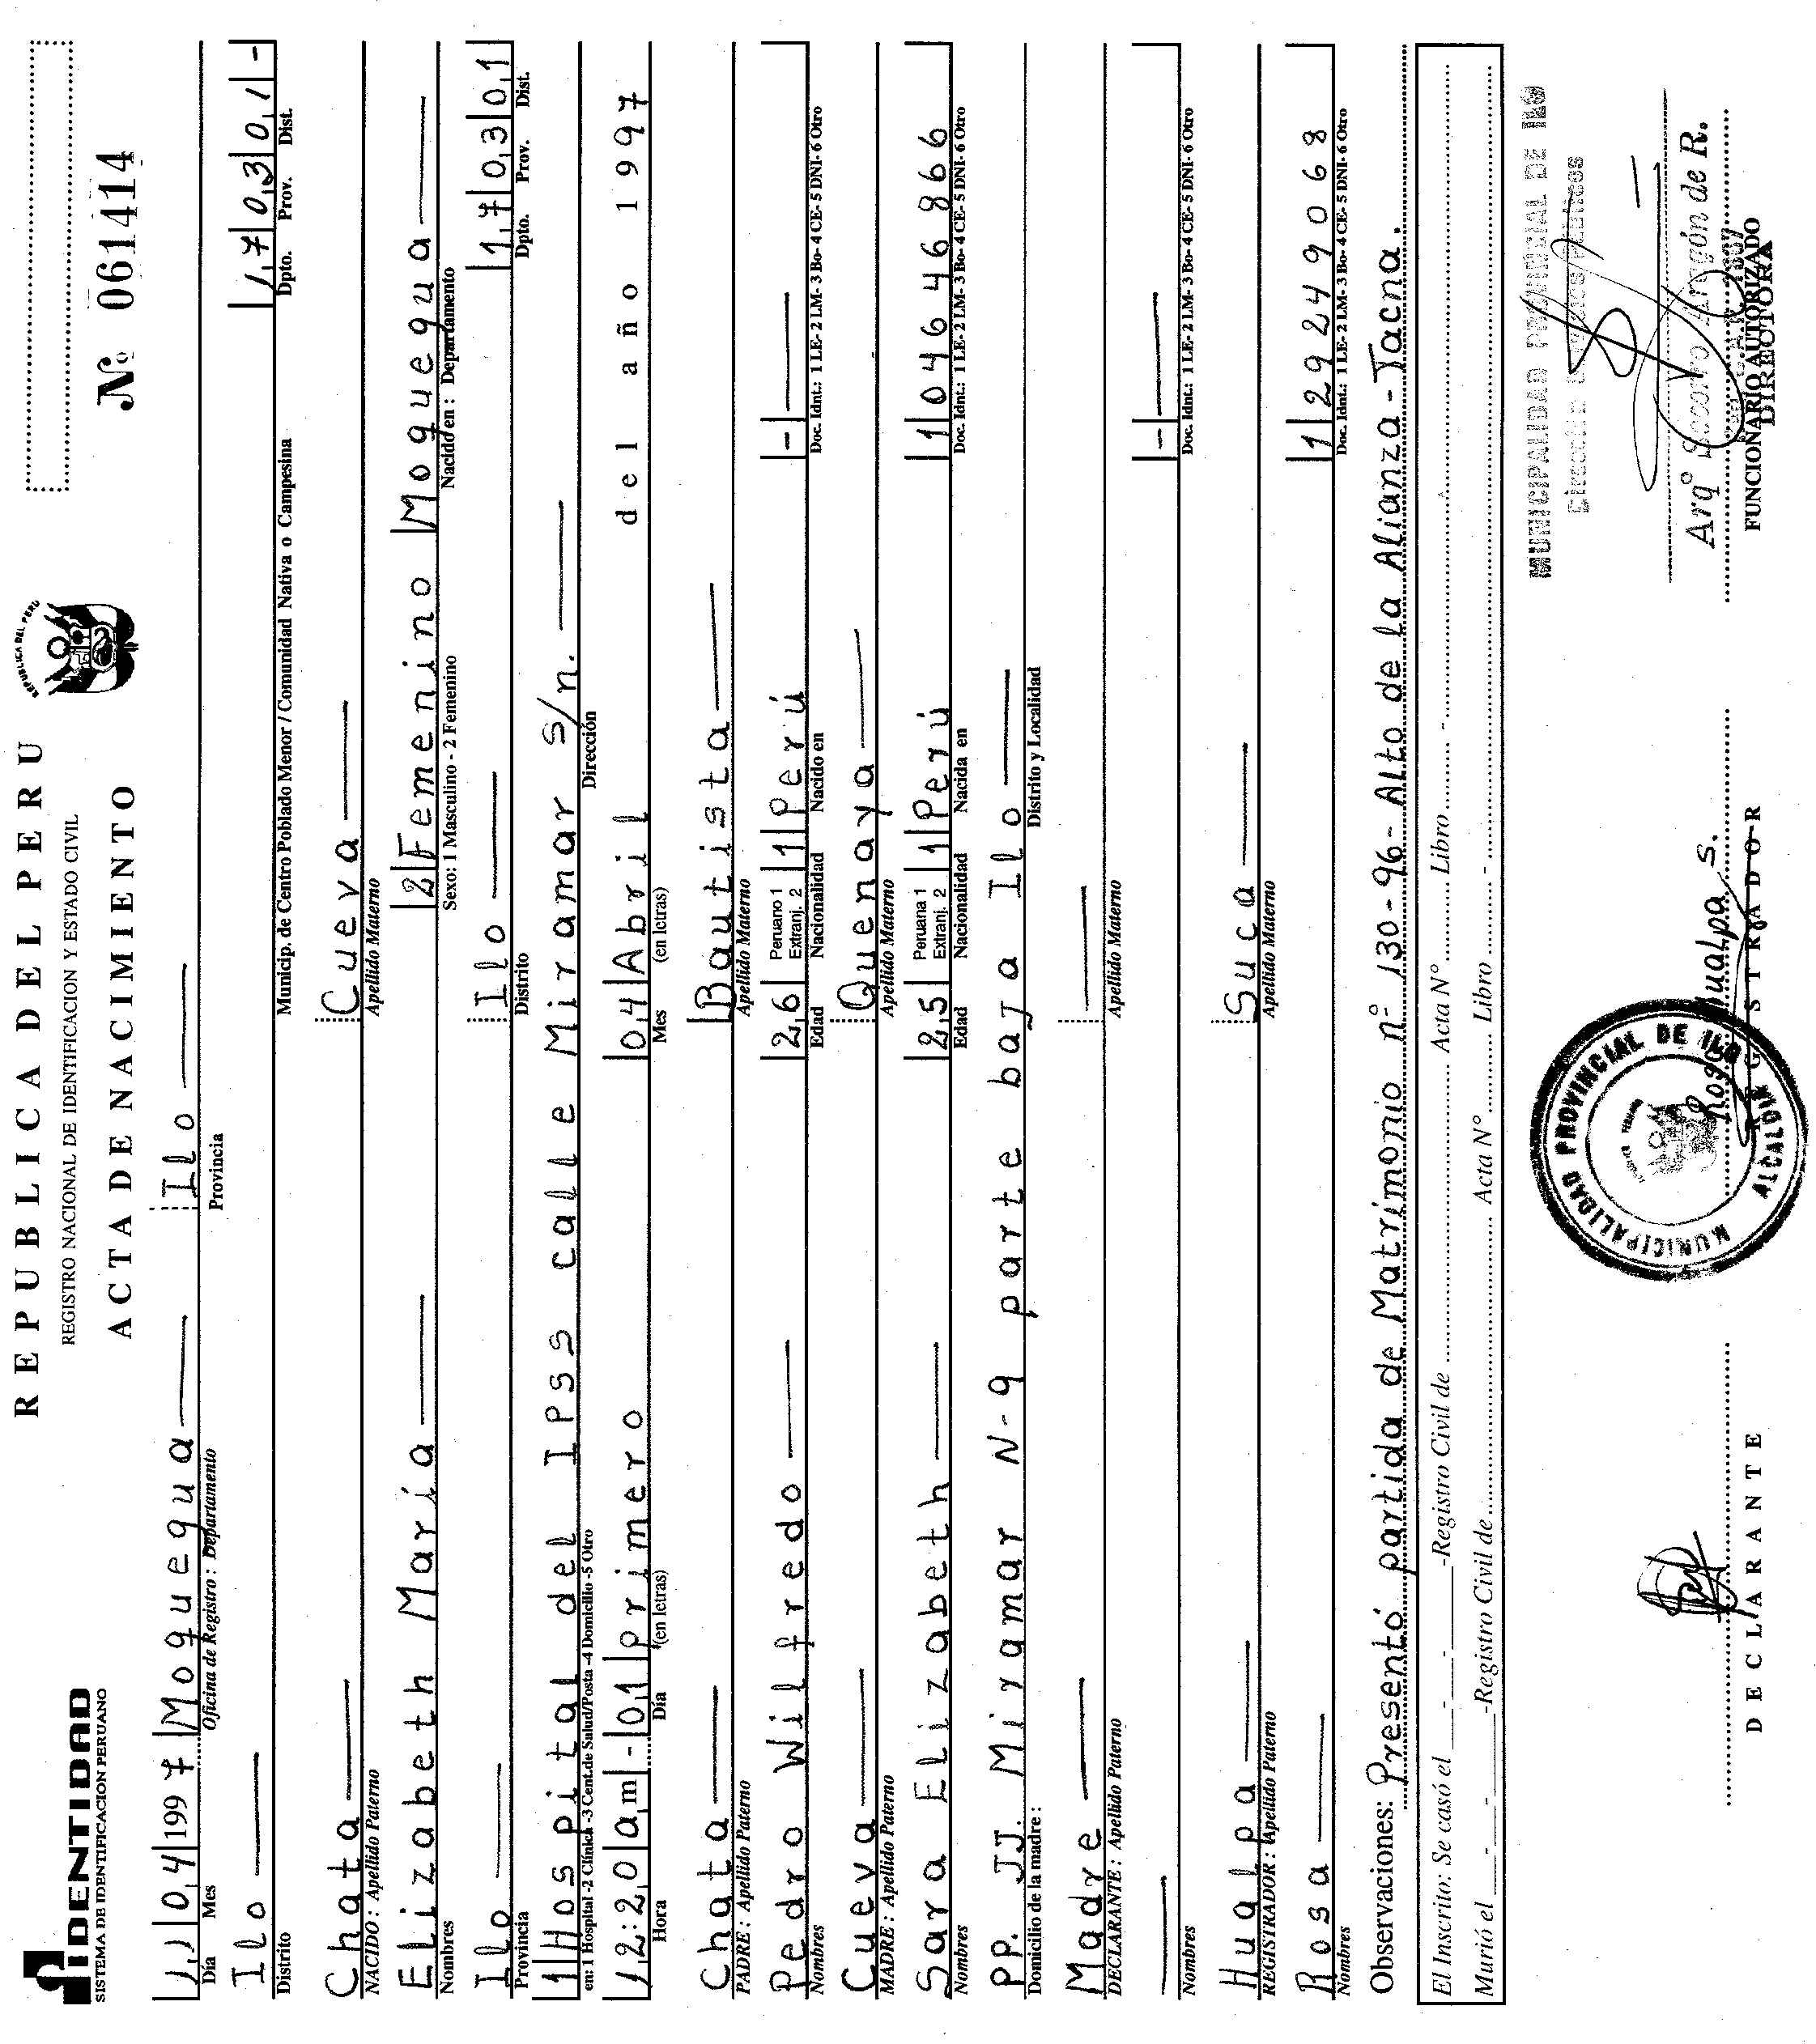 REPUBLICA DEL PERU
REGISTRO NACIONAL DE IDENTIFICACION Y ESTADO CIVIL
ACTA DE NACIMIENTO
IDENTIDAD
SISTEMA DE IDENTIFICACION PERUANO
REPUBLICA DEL PERU
Nº 061414
11 04 1997 Moquegua Ilo
Día Mes Oficina de Registro : Departamento Provincia
Ilo 17 03 01 -
Distrito Municip. de Centro Poblado Menor / Comunidad Nativa o Campesina Dpto. Prov. Dist.
Chata Cueva
NACIDO : Apellido Paterno Apellido Materno
Elizabeth María 2 Femenino Moquegua
Nombres Sexo: 1 Masculino - 2 Femenino Nacido en : Departamento
Ilo Ilo 17 03 01
Provincia Distrito Dpto. Prov. Dist.
1 Hospital del Ipss calle Miramar s/n.
en: 1 Hospital -2 Clínica -3 Cent.de Salud/Posta -4 Domicilio -5 Otro Dirección
12:20 am - 01 primero 04 Abril del año 1997
Hora Día (en letras) Mes (en letras)
Chata Bautista
PADRE : Apellido Paterno Apellido Materno
Pedro Wilfredo 26 Peruano 1 Extranj. 2 1 Perú -
Nombres Edad Nacionalidad Nacido en Doc. Idnt.: 1 LE- 2 LM- 3 Bo- 4 CE- 5 DNI- 6 Otro
Cueva Quenaya
MADRE : Apellido Paterno Apellido Materno
Sara Elizabeth 25 Peruana 1 Extranj. 2 1 Perú 1 04646866
Nombres Edad Nacionalidad Nacida en Doc. Idnt.: 1 LE- 2 LM- 3 Bo- 4 CE- 5 DNI- 6 Otro
PP. JJ. Miramar N-9 parte baja Ilo
Domicilio de la madre : Distrito y Localidad
Madre
DECLARANTE : Apellido Paterno Apellido Materno
-
Nombres Doc. Idnt.: 1 LE- 2 LM- 3 Bo- 4 CE- 5 DNI- 6 Otro
Hualpa Suca
REGISTRADOR : Apellido Paterno Apellido Materno
Rosa 1 29249068
Nombres Doc. Idnt.: 1 LE- 2 LM- 3 Bo- 4 CE- 5 DNI- 6 Otro
Observaciones: Presentó partida de Matrimonio nº 130-96- Alto de la Alianza - Tacna.
El Inscrito: Se casó el - - -Registro Civil de Acta Nº Libro -
Murió el - - -Registro Civil de Acta Nº Libro -
MUNICIPALIDAD PROVINCIAL DE ILO
MUNICIPALIDAD PROVINCIAL DE ILO
ALCALDIA
Rosa Hualpa S.
Arqº Socorro Aragón de R.
DECLARANTE
REGISTRADOR
FUNCIONARIO AUTORIZADO
DIRECTORA